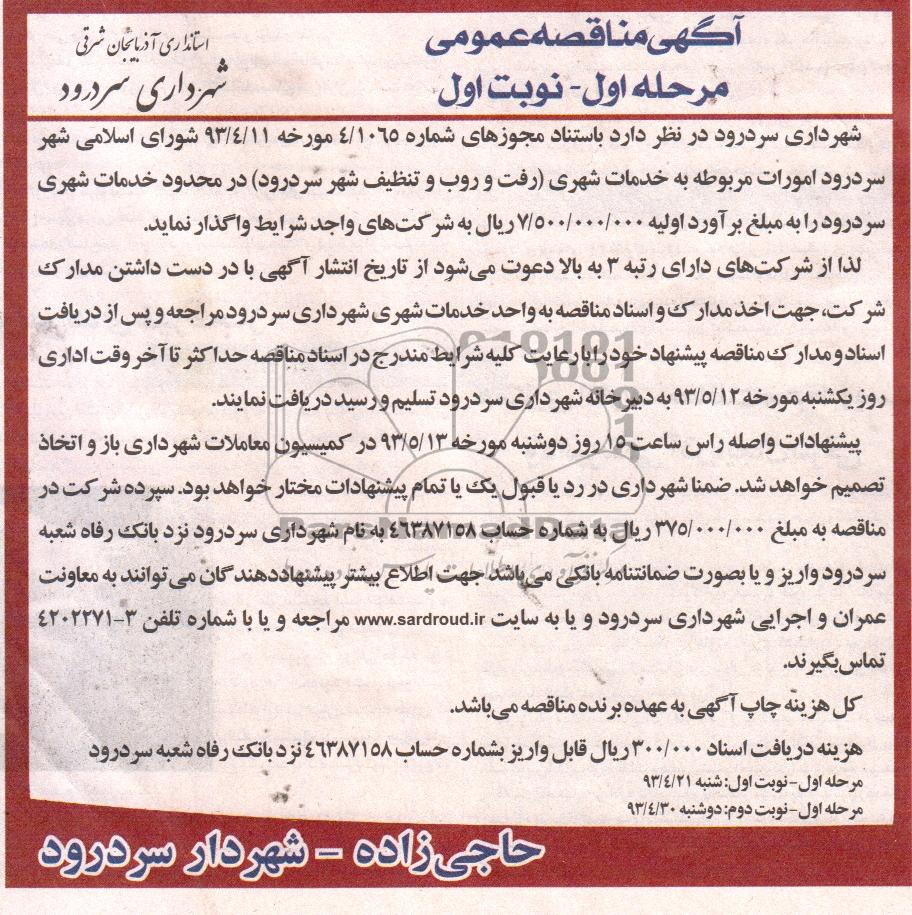 آگهی مناقصه عمومی
مرحله اول - نوبت اول
استانداری آذربایجان شرقی
شهرداری سردرود
شهرداری سردرود در نظر دارد باستناد مجوزهای شماره ۴/۱۰۶۵ مورخه ۹۳/۴/۱۱ شورای اسلامی شهر
سردرود امورات مربوطه به خدمات شهری (رفت و روب و تنظیف شهر سردرود) در محدود خدمات شهری
سردرود را به مبلغ برآورد اولیه ۷/۵۰۰/۰۰۰/۰۰۰ ریال به شرکت‌های واجد شرایط واگذار نماید.
لذا از شرکت‌های دارای رتبه ۳ به بالا دعوت می‌شود از تاریخ انتشار آگهی با در دست داشتن مدارک
شرکت، جهت اخذ مدارک و اسناد مناقصه به واحد خدمات شهری شهرداری سردرود مراجعه و پس از دریافت
اسناد و مدارک مناقصه پیشنهاد خود را با رعایت کلیه شرایط مندرج در اسناد مناقصه حداکثر تا آخر وقت اداری
روز یکشنبه مورخه ۹۳/۵/۱۲ به دبیرخانه شهرداری سردرود تسلیم و رسید دریافت نمایند.
پیشنهادات واصله راس ساعت ۱۵ روز دوشنبه مورخه ۹۳/۵/۱۳ در کمیسیون معاملات شهرداری باز و اتخاذ
تصمیم خواهد شد. ضمنا شهرداری در رد یا قبول یک یا تمام پیشنهادات مختار خواهد بود. سپرده شرکت در
مناقصه به مبلغ ۳۷۵/۰۰۰/۰۰۰ ریال به شماره حساب ۴۶۳۸۷۱۵۸ به نام شهرداری سردرود نزد بانک رفاه شعبه
سردرود واریز و یا بصورت ضمانتنامه بانکی می‌باشد. جهت اطلاع بیشتر پیشنهاددهندگان می‌توانند به معاونت
عمران و اجرایی شهرداری سردرود و یا به سایت www.sardroud.ir مراجعه و یا با شماره تلفن ۳-۴۲۰۲۲۷۱
تماس بگیرند.
کل هزینه چاپ آگهی به عهده برنده مناقصه می‌باشد.
هزینه دریافت اسناد ۳۰۰/۰۰۰ ریال قابل واریز بشماره حساب ۴۶۳۸۷۱۵۸ نزد بانک رفاه شعبه سردرود
مرحله اول - نوبت اول: شنبه ۹۳/۴/۲۱
مرحله اول - نوبت دوم: دوشنبه ۹۳/۴/۳۰
حاجی‌زاده - شهردار سردرود